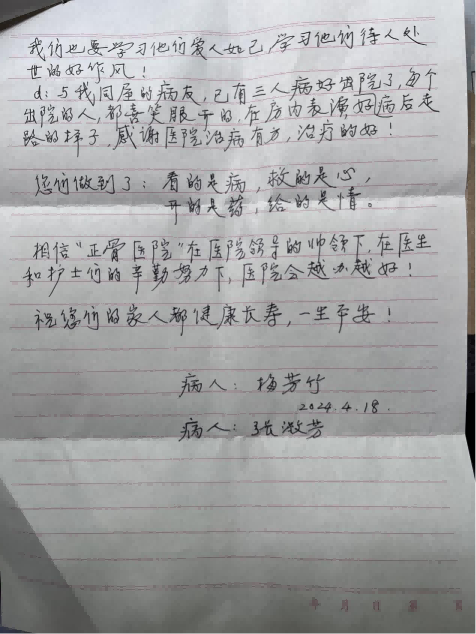 我们也要学习他们爱人如己,学习他们待人处
世的好作风!
d:与我同屋的病友,已有三人病好出院了,每个
出院的人,都喜笑眼开的,在房内表演好病后走
路的样子,感谢医院治病有方,治疗的好!
您们做到了:看的是病,救的是心,
开的是药,给的是情。
相信"正骨医院"在医院领导的帅领下,在医生
和护士们的辛勤努力下,医院会越办越好!
祝您们的家人都健康长寿,一生平安!
病人:梅芳竹
2024.4.18.
病人:张淑芳
年 月 日 第 页